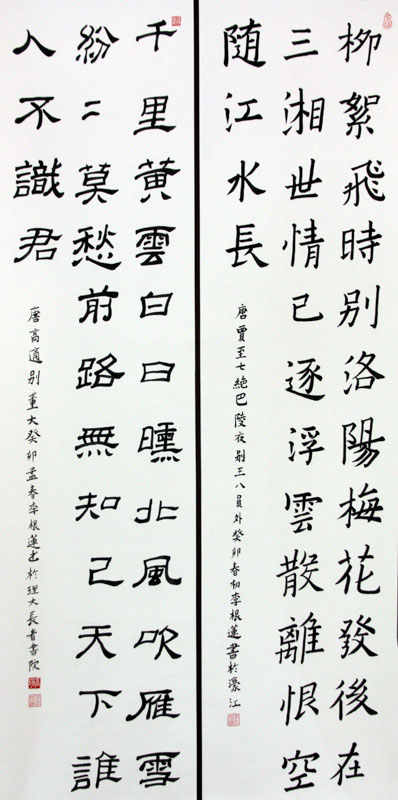 柳絮飛時別洛陽梅花發後在
三湘世情已逐浮雲散離恨空
隨江水長
唐賈至七絕巴陵夜別王八員外癸卯春初李根蓮書於濠江
千里黃雲白日曛北風吹雁雪
紛〻莫愁前路無知己天下誰
人不識君
唐高適別董大癸卯孟春李根蓮書於理大長者書院